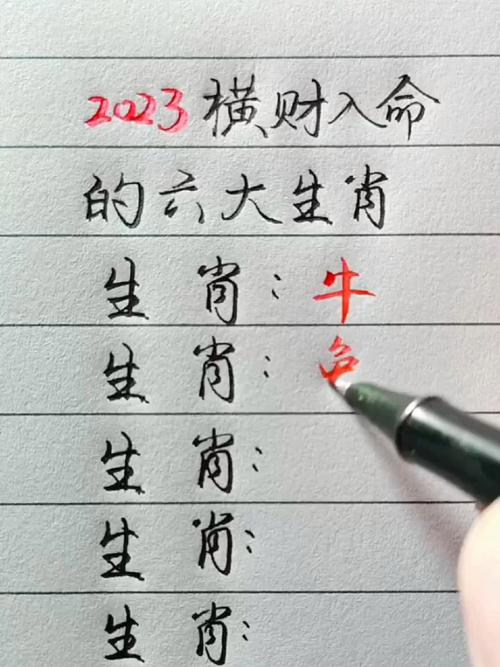 2023横财入命
的六大生肖
生肖:牛
生肖:
生肖:
生肖:
生肖: